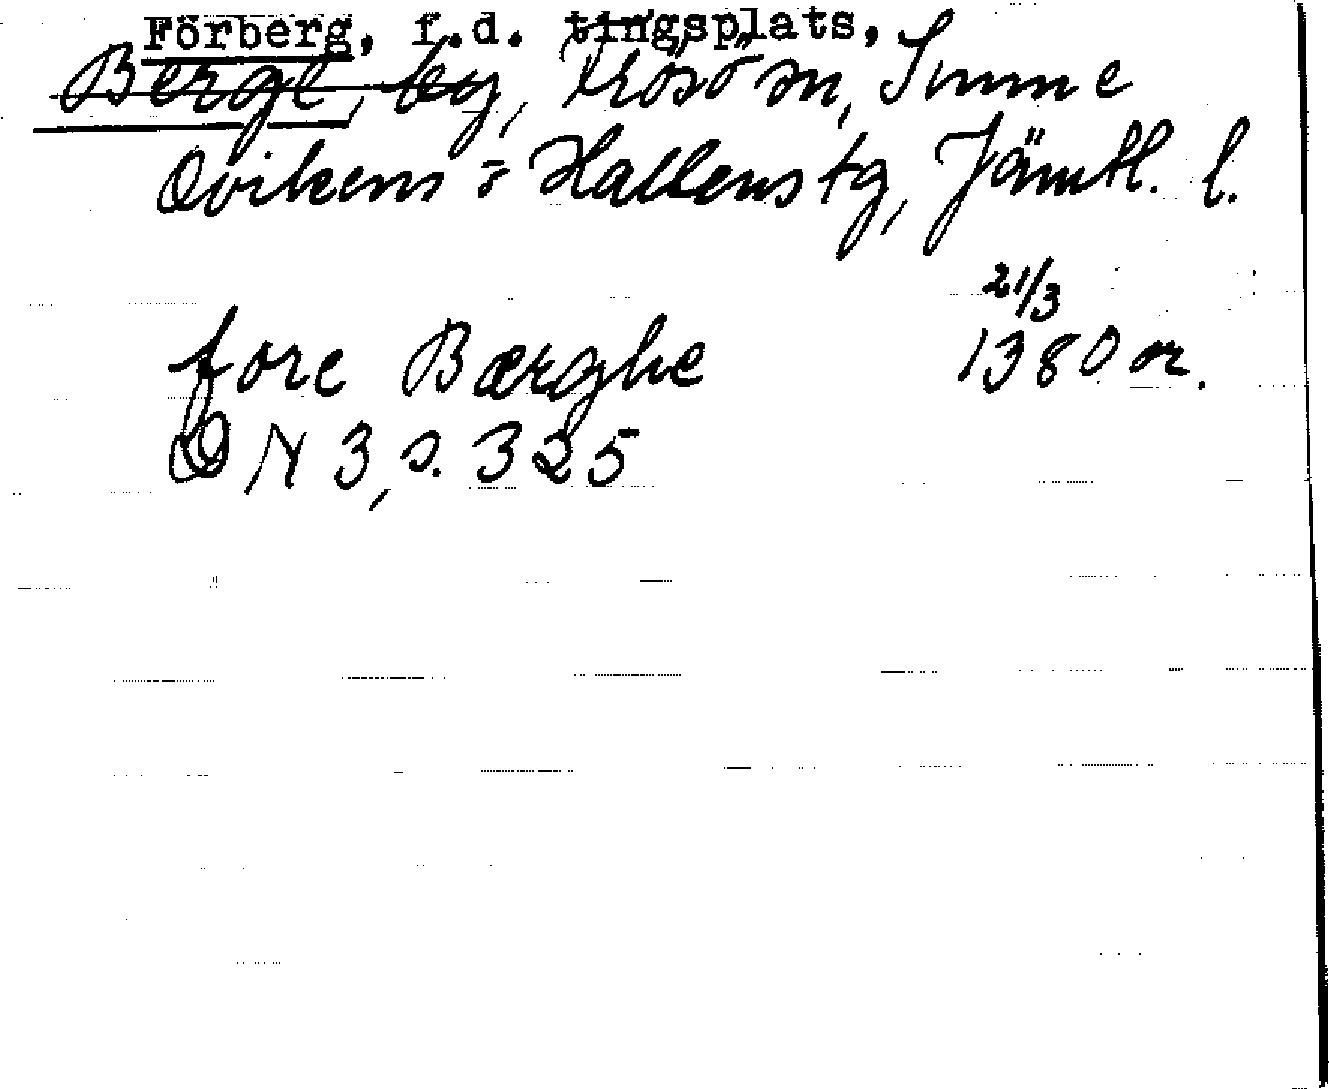 Förberg, f.d. tingsplats,
Berge, by, Frösö sn, Sunne
Ovikens o Hallens tg, Jämtl. l.
21/3
fore Bærghe 1380 or.
DN 3, s. 325